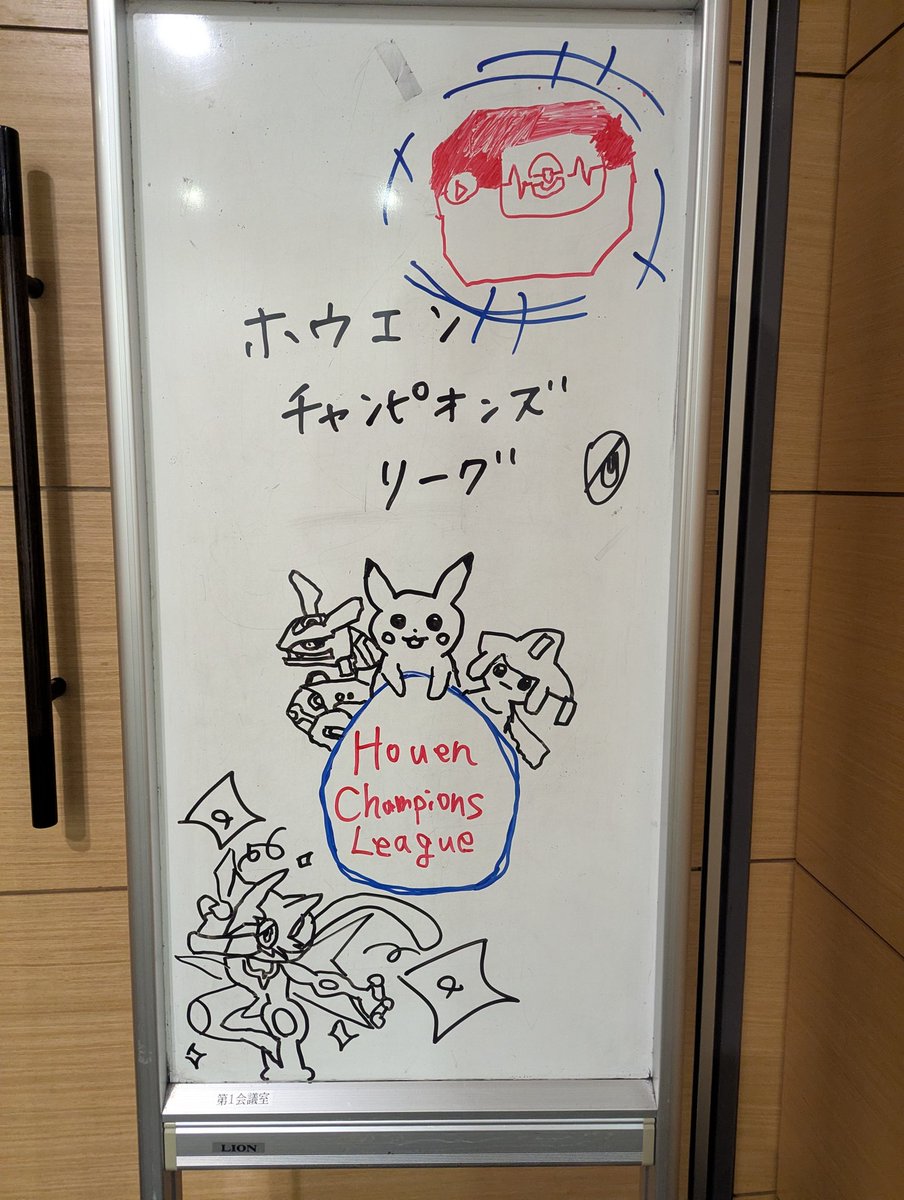 ホウエン
チャンピオンズ
リーグ
Houen
Champions
League
第1会議室
LION